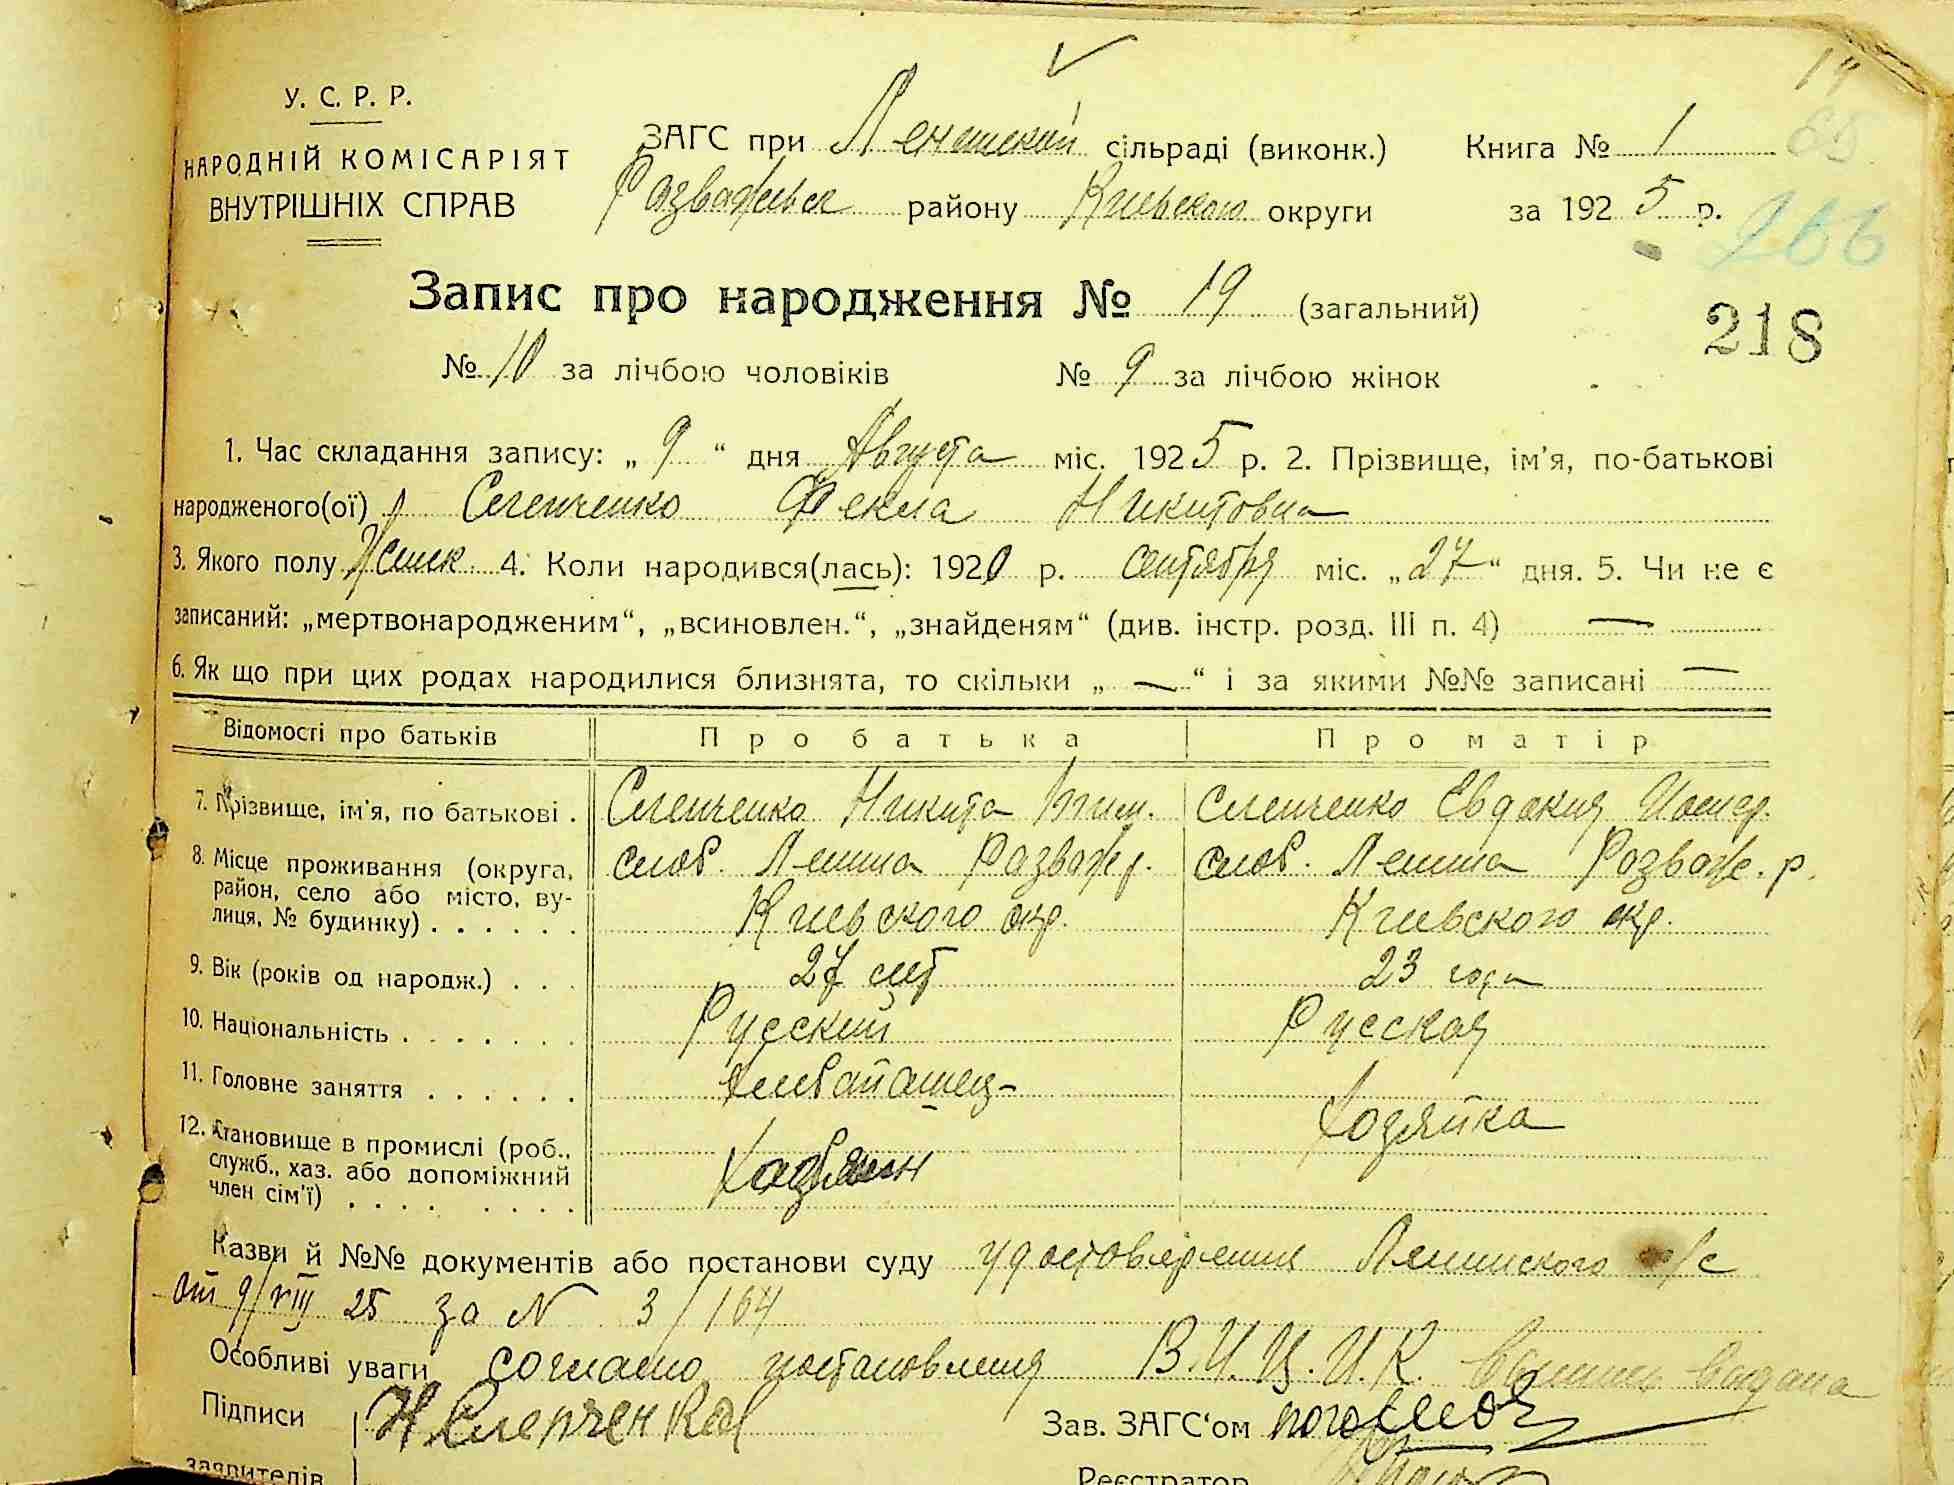 У. С. Р. Р.
НАРОДНІЙ КОМІСАРІЯТ
ВНУТРІШНІХ СПРАВ
ЗАГС при Ленинский сільраді (виконк.) Книга № 1
района Киевского округи за 1925 р.
266
218
Запис про народження № 19 (загальний)
№ 10 за лічбою чоловіків № 9 за лічбою жінок
1. Час складання запису: „ 9 “ дня Августа міс. 1925 р. 2. Прізвище, ім'я, по-батькові
народженого(ої) Слепченко Фекла Никитовна
3. Якого полу Женск 4. Коли народився(лась): 1920 р. сентября міс. „27“ дня. 5. Чи не є
записаний: „мертвонародженим“, „всиновлен.“, „знайденям“ (див. інстр. розд. III п. 4) —
6. Як що при цих родах народилися близнята, то скільки „ — “ і за якими №№ записані —
Відомості про батьків Про батька Про матір
7. Прізвище, ім'я, по батькові . Слепченко Никита Слепченко Евдокия
8. Місце проживання (округа, район, село або місто, вулиця, № будинку) . . . . . . слоб. Ленина Разваж. р. Киевского окр. слоб. Ленина Розваж. р. Киевского окр.
9. Вік (років од народж.) . . . 27 лет 23 года
10. Національність . . . . . . . Русский Русская
11. Головне заняття . . . . . . Хлебопашец
12. Становище в промислі (роб., служб., хаз. або допоміжний член сім'ї) . . . . . . . . Хозяин Хозяйка
Назви й №№ документів або постанови суду удостоверения Ленинского с/с
от 9/VIII 25 за N 3/164
Особливі уваги согласно постановления В.И.Ц.И.К. выдана
Підписи Н Слепченков Зав. ЗАГС'ом
заявителів Реєстратор